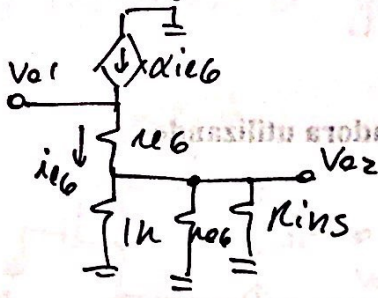 αie6
Ve1
re6
ie6
Ve2
1k
ro6
Rin5